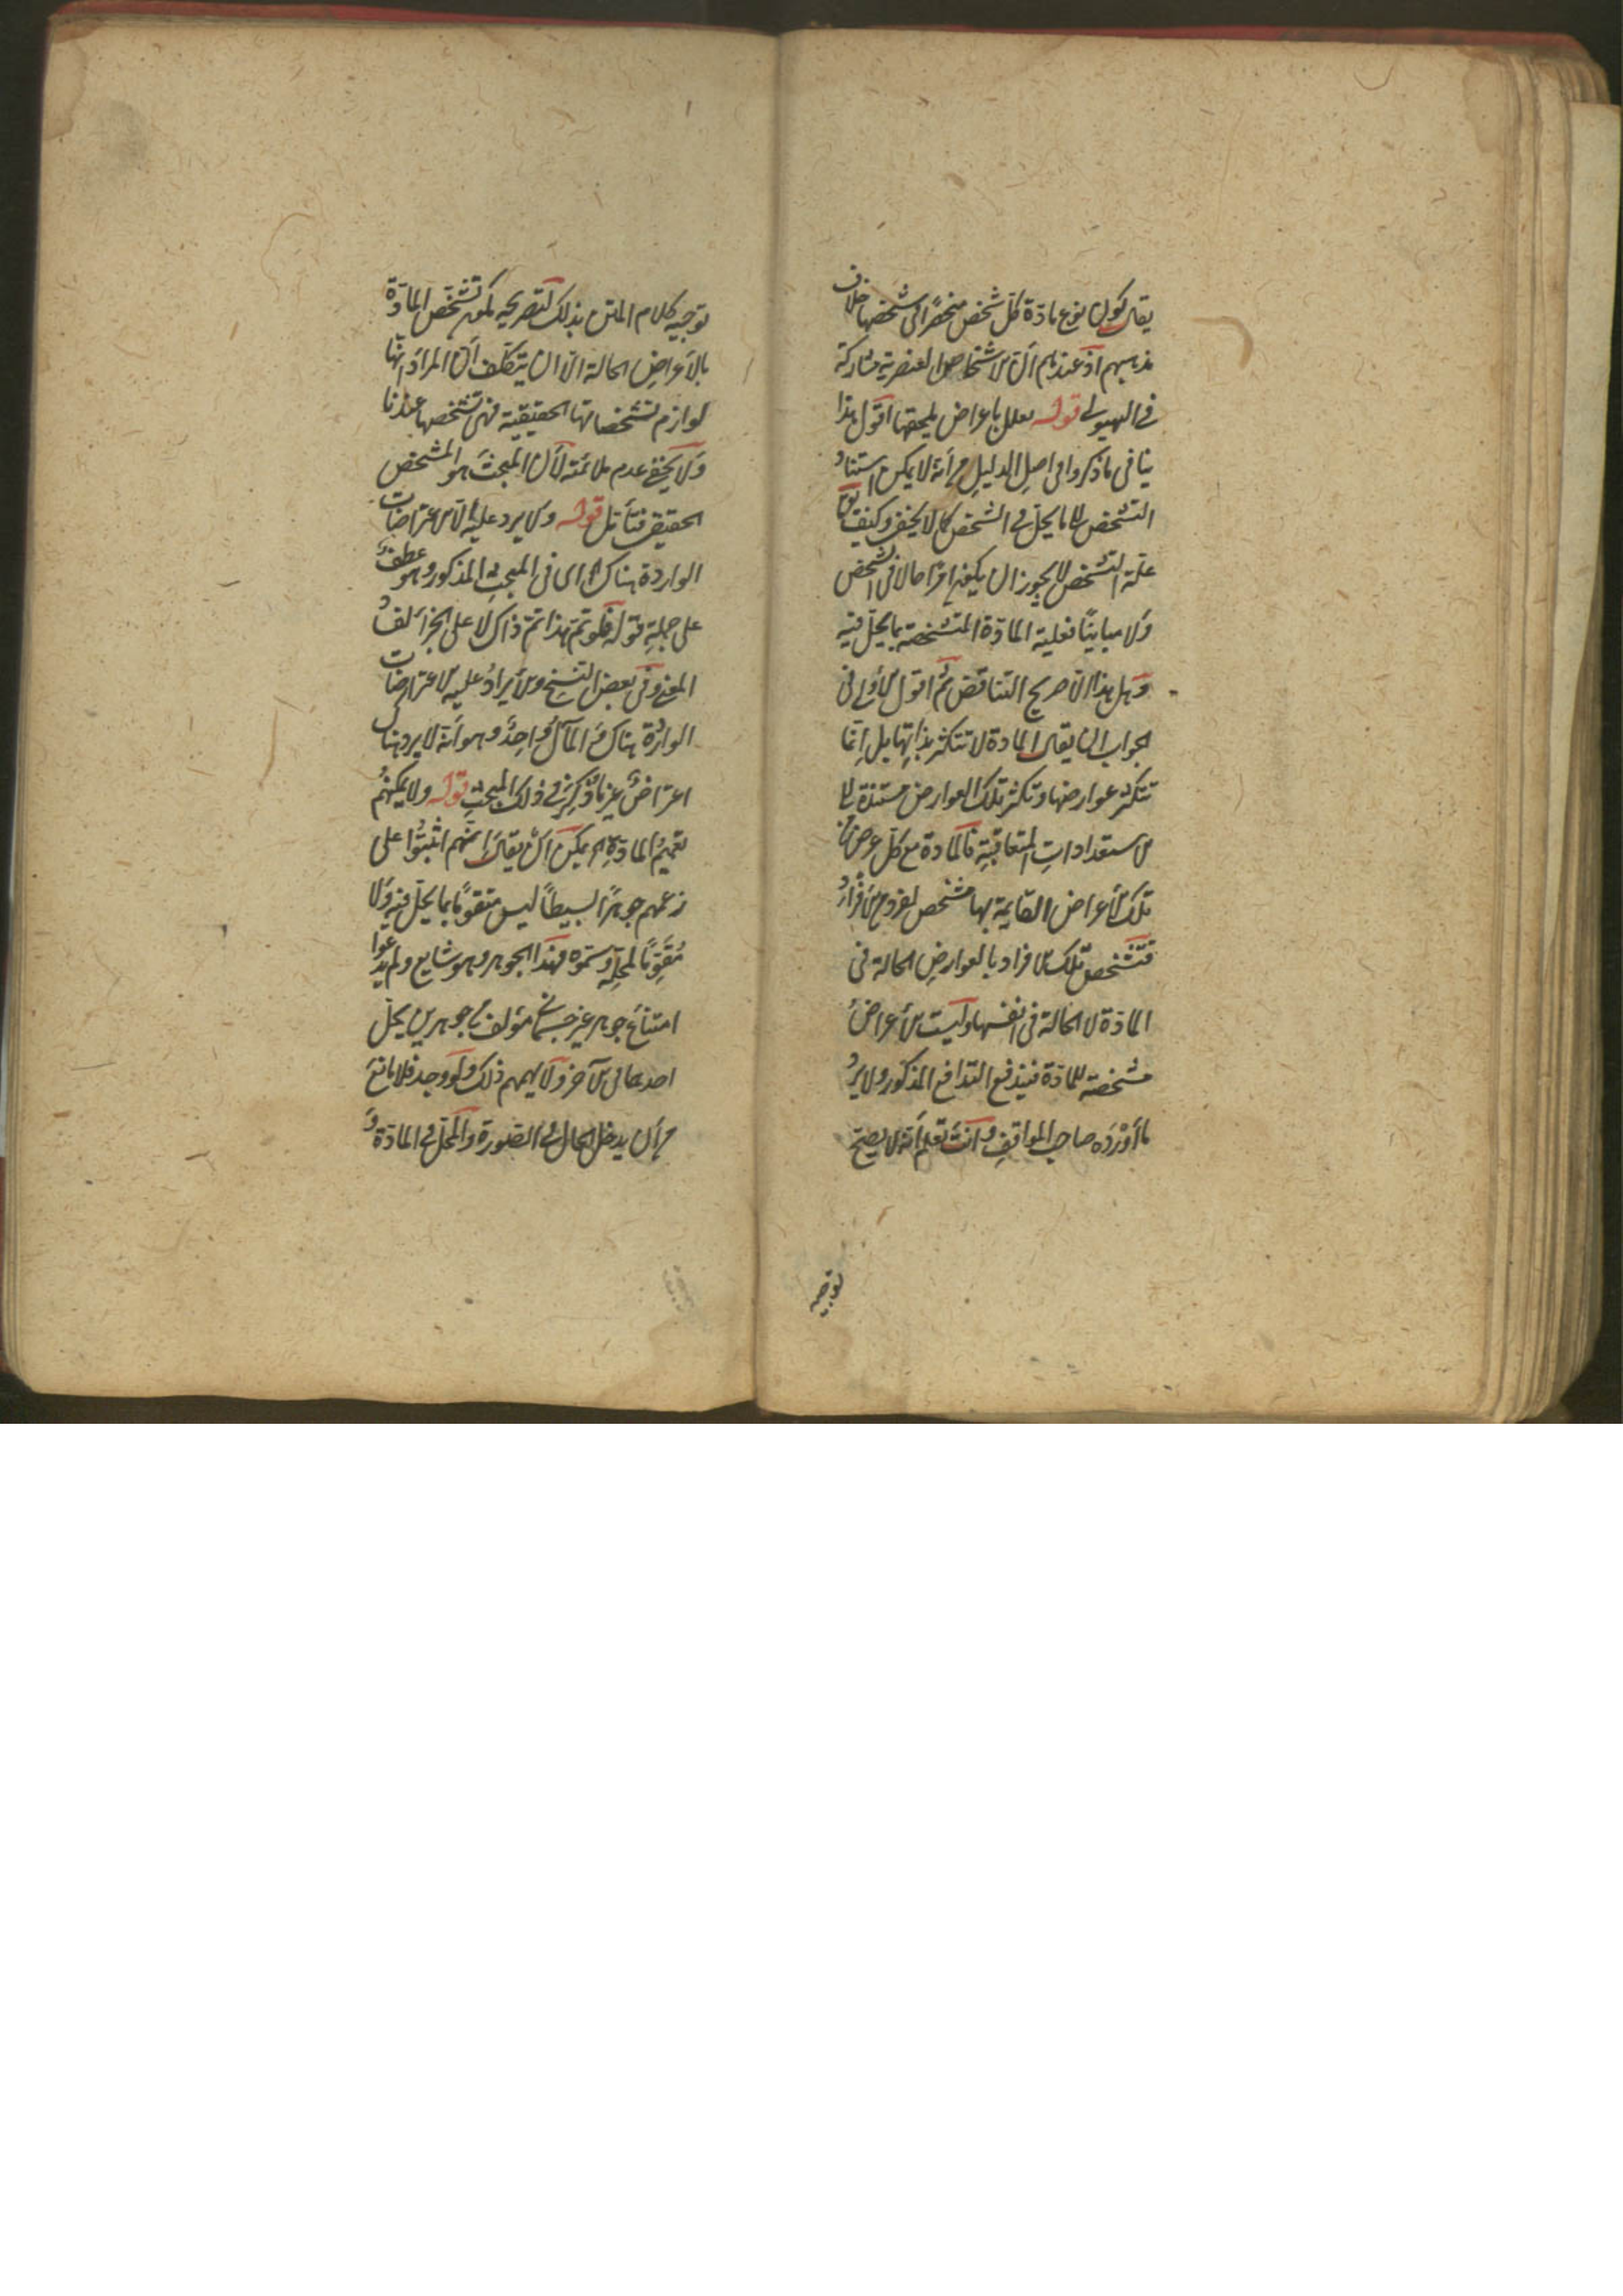 يقال كون نوع مادة كل شخص منحصرا في شخصها خلاف
مذهبهم اذ عندهم ان الاشخاص العنصرية مشاركة
في الهيولى قوله معلل باعراض يلحقها اقول هذا
ينافي ما ذكروا في اصل الدليل من أنه لا يمكن استناد
التشخص الى ما يحل في الشخص كما لا يخفى وكيف
علة التشخص لا يجوز ان يكون امرا حالا في الشخص
ولا مباينا فعلية المادة المتشخصة بما يحل فيه
وهل هذا الا صريح التناقض ثم اقول الأولى في
الجواب ان يقال المادة لا تتكثر بذاتها بل إنما
تتكثر عوارضها وتكثر تلك العوارض مستندة الى
الاستعدادات المتعاقبة فالمادة مع كل عرض من
تلك الأعراض القايمة بها مشخص لفرد من الأفراد
فتشخص تلك الافراد بالعوارض الحالة في
المادة لا الحالة في انفسها وليست الأعراض
مشخصة للمادة فيندفع التدافع المذكور ولا يرد
ما أورده صاحب المواقف وانت تعلم أنه لا يصح
توجيه
توجيه كلام المتن بذلك لتصريحه بكون تشخص المادة
بالأعراض الحالة الا ان يتكلف أن المراد انها
لوازم تشخصاتها الحقيقية فهي تشخصها عندنا
ولا يخفى عدم ملائمته لأن المبحث هو المشخص
الحقيقي فتأمل قوله ولا يرد عليه الاعتراضات
الواردة هناك اى في المبحث المذكور وهو عطف
على جملة قوله فلو تم هذا تم ذاك لا على الجزاء لفساد
المعنى وفي بعض النسخ ولا يراد عليه الاعتراضات
الواردة هناك والمآل واحد وهو أنه لا يرد هناك
اعتراض غير ما ذكر في ذلك المبحث قوله ولا يمكنهم
تعميم المادة اه يمكن أن يقال إنهم اثبتوا على
زعمهم جوهرا بسيطا ليس متقوما بما يحل فيه ولا
مقوما لمحله وسموه بهذا الجوهر وهو شايع ولم يدعوا
امتناع جوهر غير جسماني مؤلف من جوهرين يحل
احدهما في الآخر ولا يهمهم ذلك ولو وجد فلا مانع
من أن يدخل الحال في الصورة والمحل في المادة و